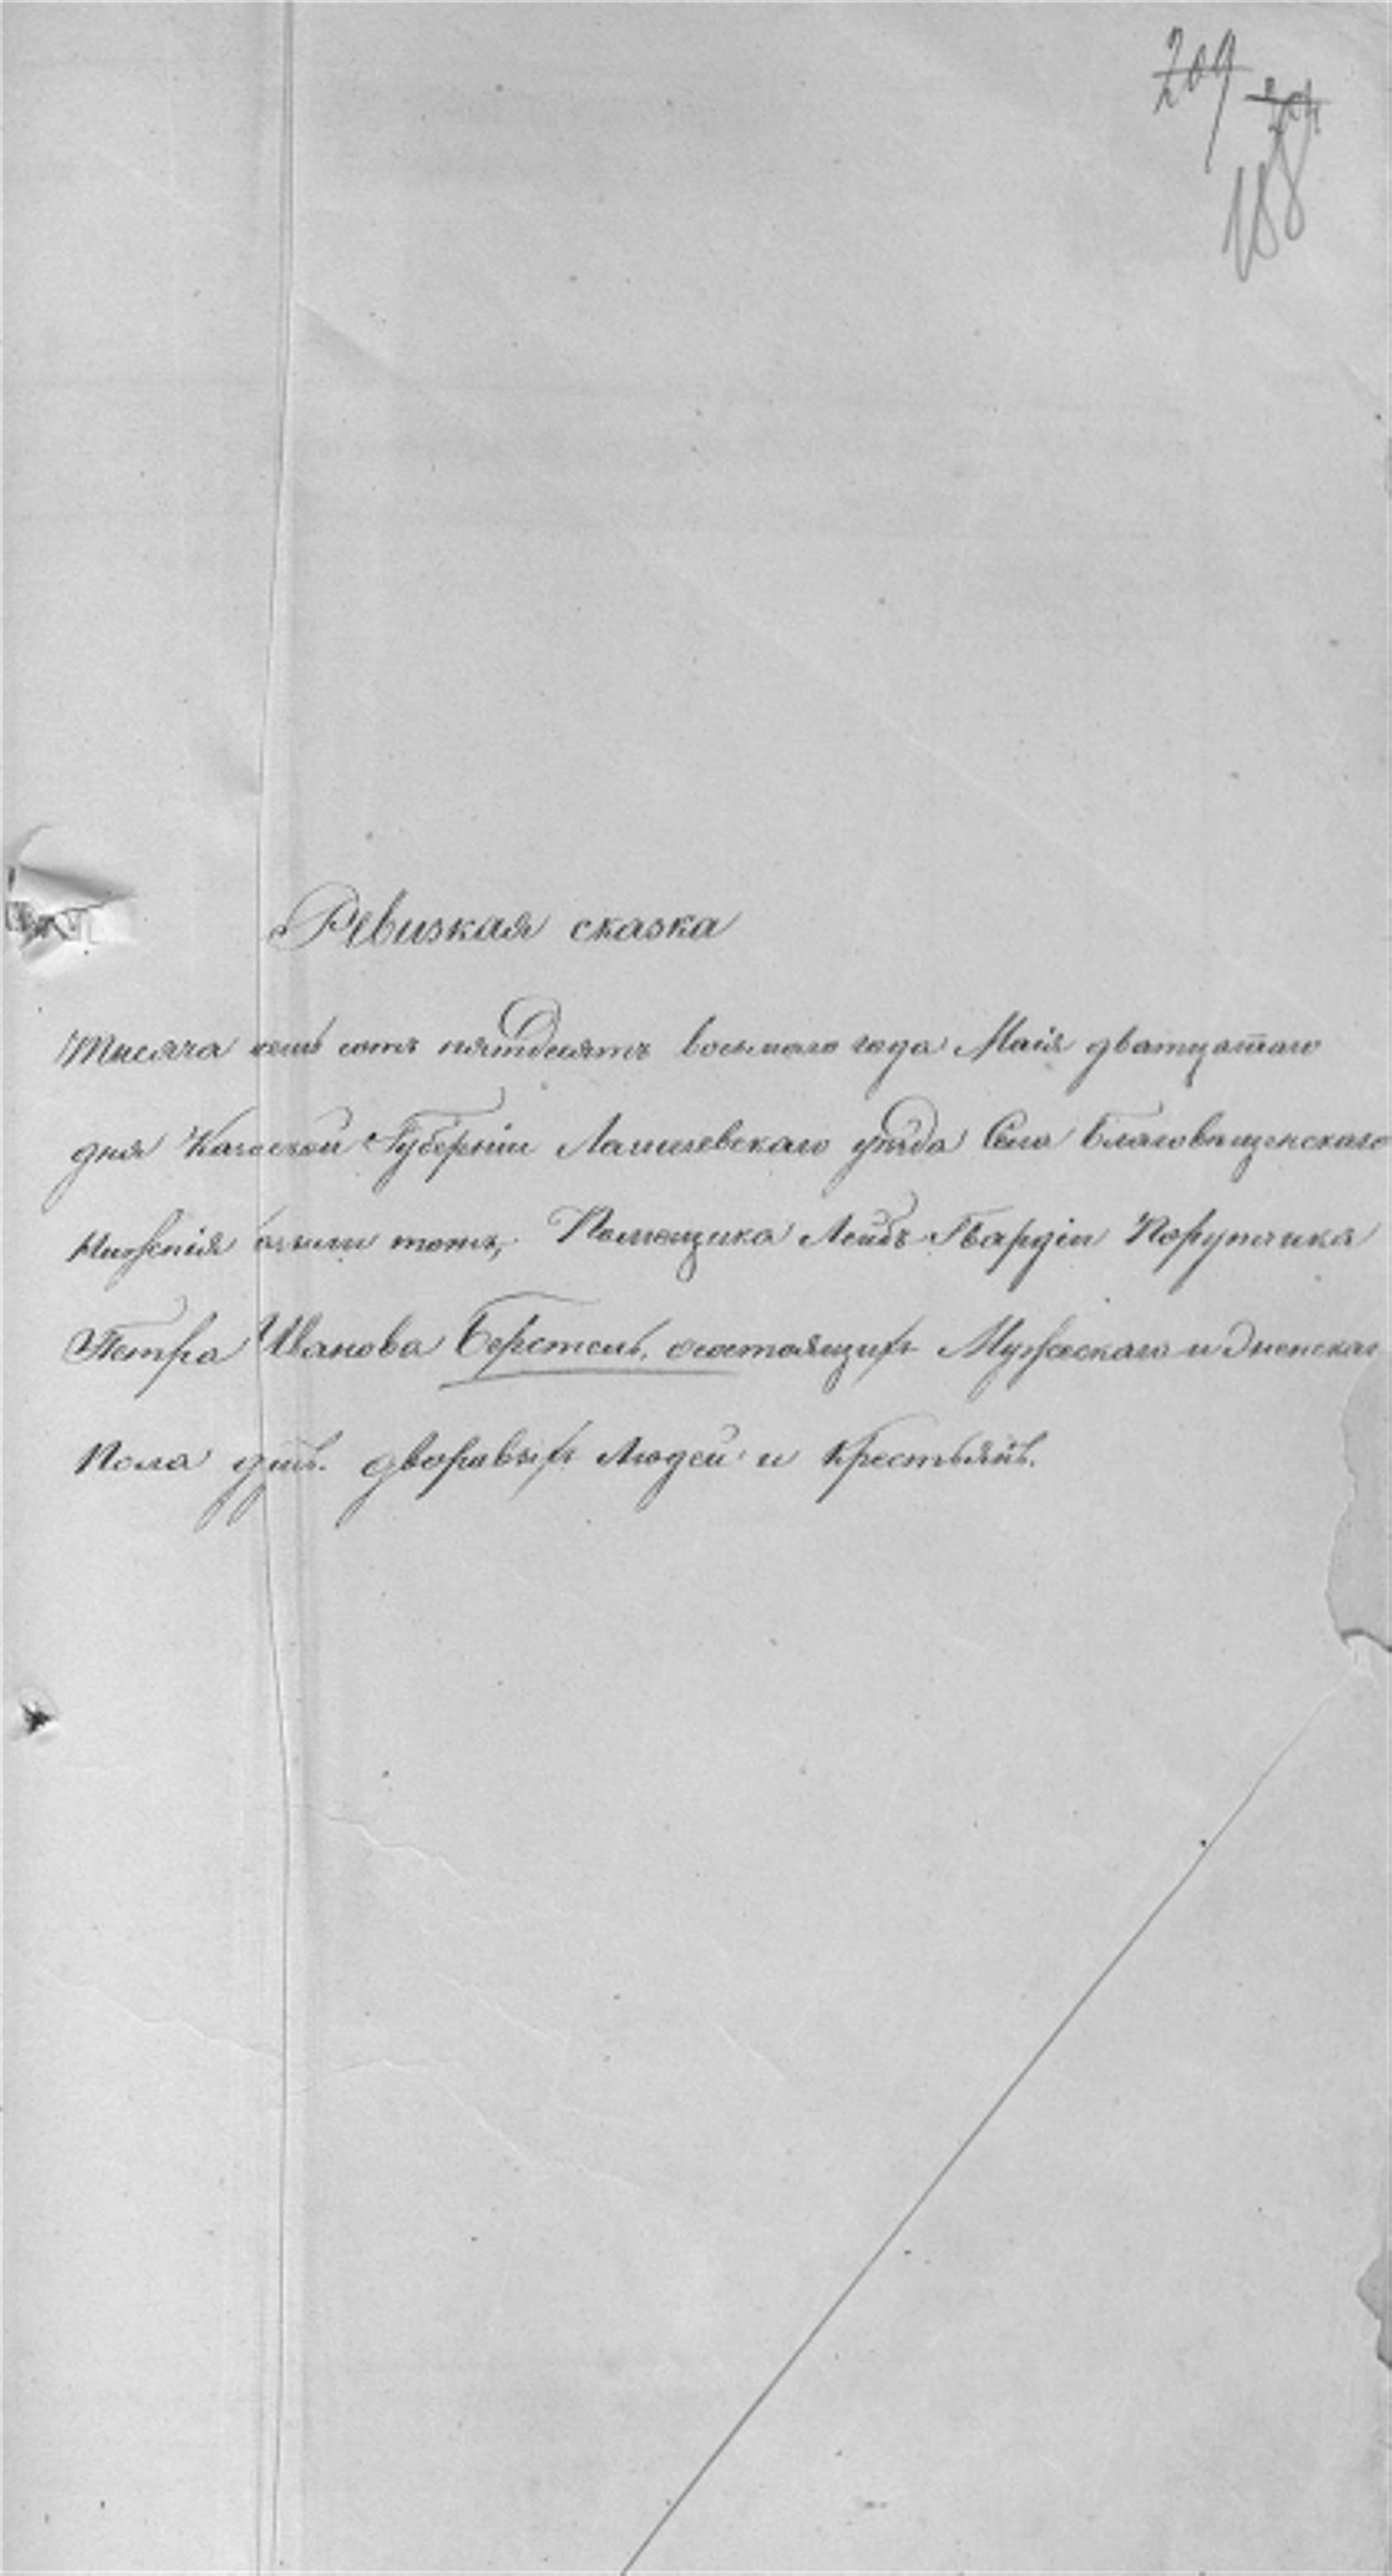 209
188
Ревизкая сказка
Тысяча семь сотъ пятдесятъ восьмаго года Маія дватцатаго
дня Казанской Губерніи Лаишевскаго уѣзда Села Благовещенскаго
Нижнія тожъ, Помещика Лейбъ Гвардіи Порутчика
Петра Иванова Берстель, состоящихъ Мужескаго и Женскаг
Пола душъ. дворавыхъ Людей и Крестьянъ.